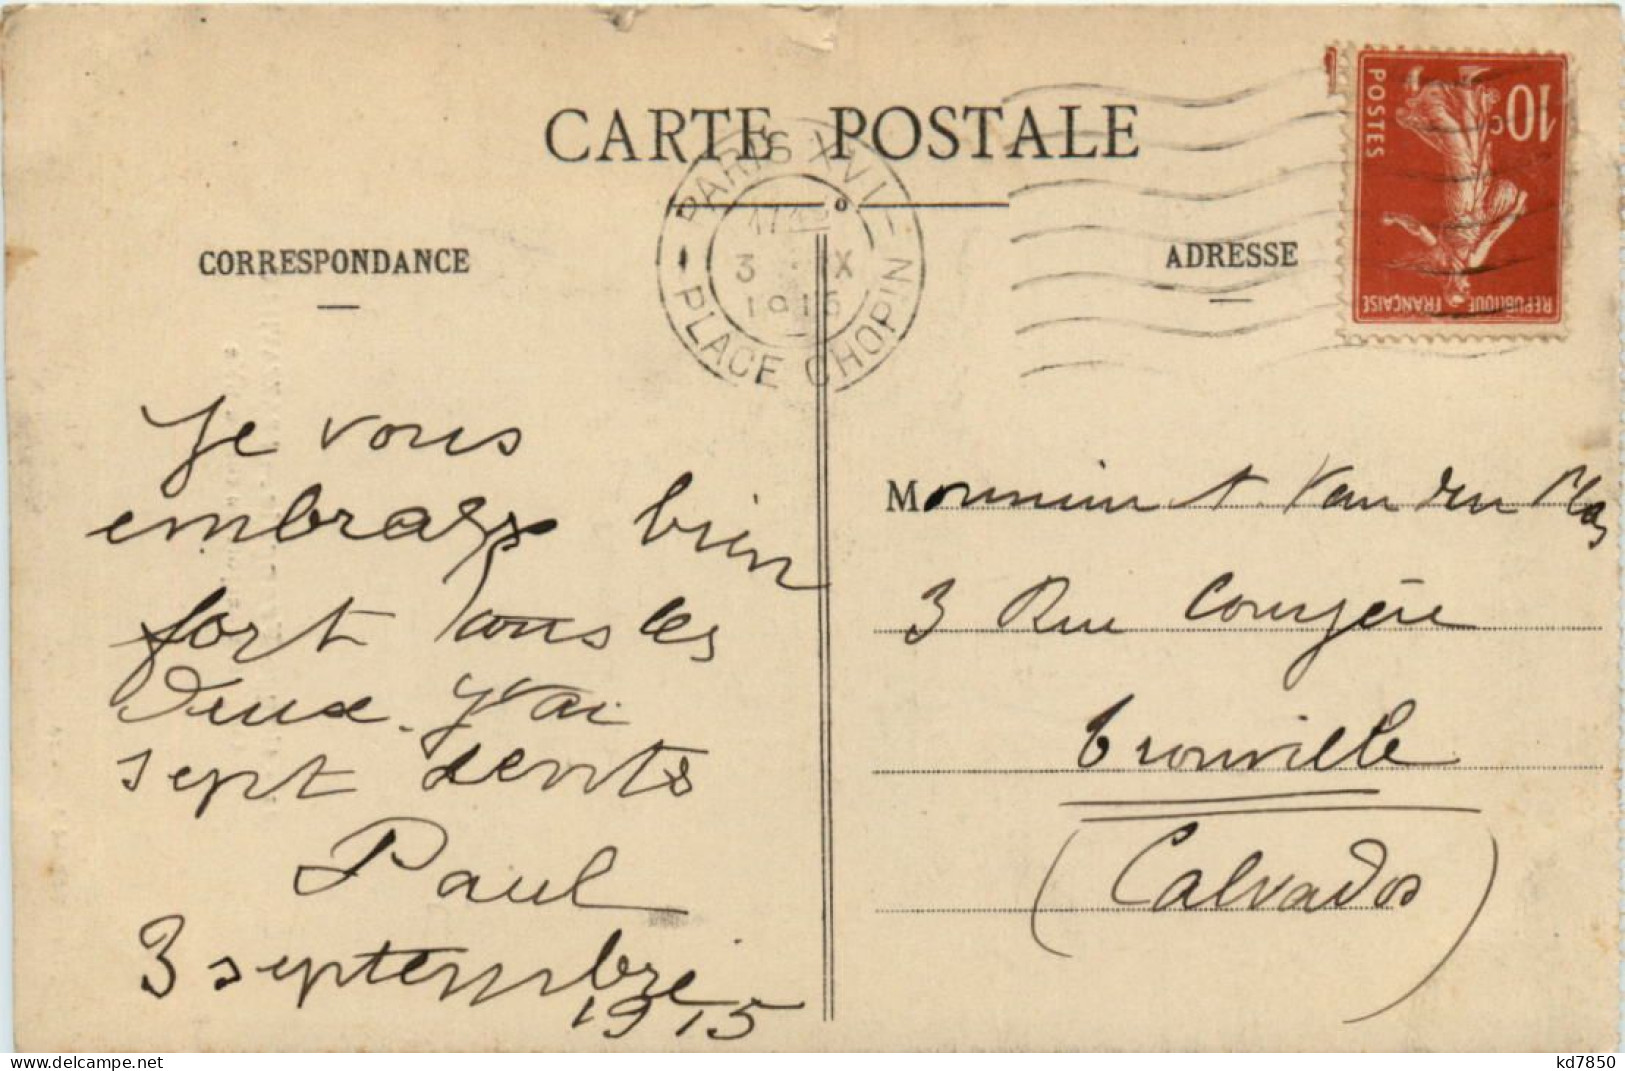 CARTE POSTALE
PARIS XVI
PLACE CHOPIN
3 IX
1915
10c
POSTES
REPUBLIQUE FRANÇAISE
CORRESPONDANCE
ADRESSE
Je vous
embrasse bien
fort tous les
deux. J'ai
sept dents
Paul
3 septembre
1915
Monsieur A. Van den
3 Rue
Trouville
(Calvados)
delcampe.net
kd7850